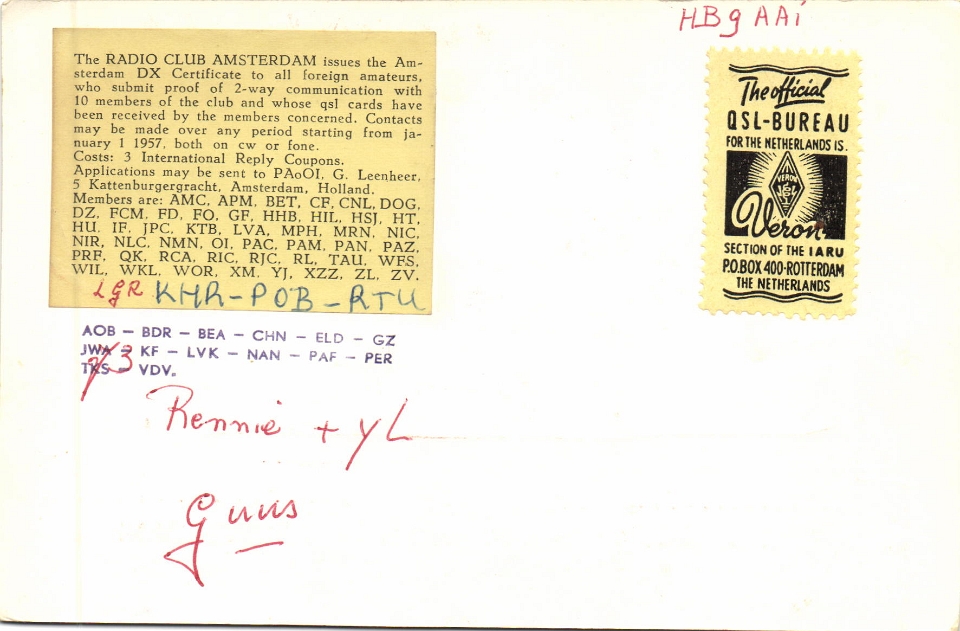 HB9AAi
The RADIO CLUB AMSTERDAM issues the Am-
sterdam DX Certificate to all foreign amateurs,
who submit proof of 2-way communication with
10 members of the club and whose qsl cards have
been received by the members concerned. Contacts
may be made over any period starting from ja-
nuary 1 1957, both on cw or fone.
Costs: 3 International Reply Coupons.
Applications may be sent to PAoOI, G. Leenheer,
5 Kattenburgergracht, Amsterdam, Holland.
Members are: AMC, APM, BET, CF, CNL, DOG,
DZ, FCM, FD, FO, GF, HHB, HIL, HSJ, HT,
HU, IF, JPC, KTB, LVA, MPH, MRN, NIC,
NIR, NLC, NMN, OI, PAC, PAM, PAN, PAZ,
PRF, QK, RCA, RIC, RJC, RL, TAU, WFS,
WIL, WKL, WOR, XM, YJ, XZZ, ZL, ZV.
LGR KHR-POB-RTU
AOB – BDR – BEA – CHN – ELD – GZ
JWA – KF – LVK – NAN – PAF – PER
TKS – VDV.
73
Rennie + YL
Guus
The official
QSL-BUREAU
FOR THE NETHERLANDS IS.
VERON
Veron
SECTION OF THE IARU
P.O.BOX 400-ROTTERDAM
THE NETHERLANDS